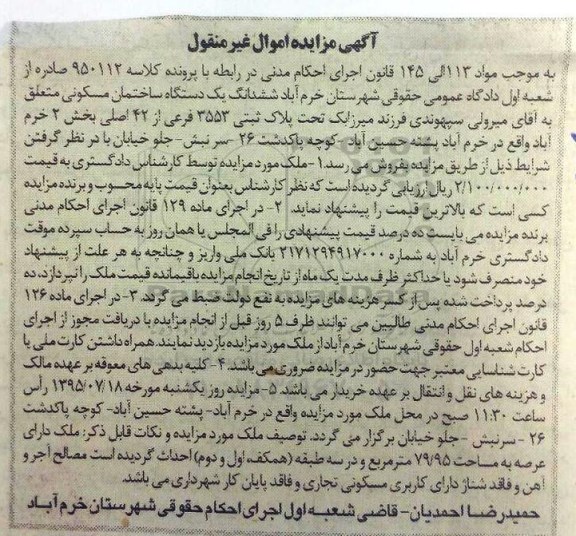 آگهی مزایده اموال غیر منقول
به موجب مواد ۱۱۳ الی ۱۴۵ قانون اجرای احکام مدنی در رابطه با پرونده کلاسه ۹۵۰۱۱۲ صادره از
شعبه اول دادگاه عمومی حقوقی شهرستان خرم آباد ششدانگ یک دستگاه ساختمان مسکونی متعلق
به آقای میرولی سپهوندی فرزند میرزابک تحت پلاک ثبتی ۳۵۵۳ فرعی از ۴۲ اصلی بخش ۲ خرم
آباد واقع در خرم آباد پشته حسین آباد-کوچه پاکدشت ۲۶ -سر نبش-جلو خیابان با در نظر گرفتن
شرایط ذیل از طریق مزایده بفروش می رسد.۱-ملک مورد مزایده توسط کارشناس دادگستری به قیمت
۲/۱۰۰/۰۰۰/۰۰۰ ریال ارزیابی گردیده است که نظر کارشناس بعنوان قیمت پایه محسوب و برنده مزایده
کسی است که بالاترین قیمت را پیشنهاد نماید. ۲- در اجرای ماده ۱۲۹ قانون اجرای احکام مدنی
برنده مزایده می بایست ده درصد قیمت پیشنهادی را فی المجلس یا همان روز به حساب سپرده موقت
دادگستری خرم آباد به شماره ۲۱۷۱۲۹۴۹۱۷۰۰۰ بانک ملی واریز و چنانچه به هر علت از پیشنهاد
خود منصرف شود یا حداکثر ظرف مدت یک ماه از تاریخ انجام مزایده باقیمانده قیمت ملک را نپردازد، ده
درصد پرداخت شده پس از کسر هزینه های مزایده به نفع دولت ضبط می گردد. ۳- در اجرای ماده ۱۲۶
قانون اجرای احکام مدنی طالبین می توانند ظرف ۵ روز قبل از انجام مزایده با دریافت مجوز از اجرای
احکام شعبه اول حقوقی شهرستان خرم آباد از ملک مورد مزایده بازدید نمایند.همراه داشتن کارت ملی یا
کارت شناسایی معتبر جهت حضور در مزایده ضروری می باشد. ۴-کلیه بدهی های معوقه بر عهده مالک
و هزینه های نقل و انتقال بر عهده خریدار می باشد. ۵-مزایده روز یکشنبه مورخه ۱۳۹۵/۰۷/۱۸ رأس
ساعت ۱۱:۳۰ صبح در محل ملک مورد مزایده واقع در خرم آباد- پشته حسین آباد-کوچه پاکدشت
۲۶ -سرنبش -جلو خیابان برگزار می گردد. توصیف ملک مورد مزایده و نکات قابل ذکر: ملک دارای
عرصه به مساحت ۷۹/۹۵ مترمربع و در سه طبقه (همکف، اول و دوم) احداث گردیده است مصالح آجر و
آهن و فاقد شناژ دارای کاربری مسکونی تجاری و فاقد پایان کار شهرداری می باشد.
حمیدرضا احمدیان- قاضی شعبه اول اجرای احکام حقوقی شهرستان خرم آباد